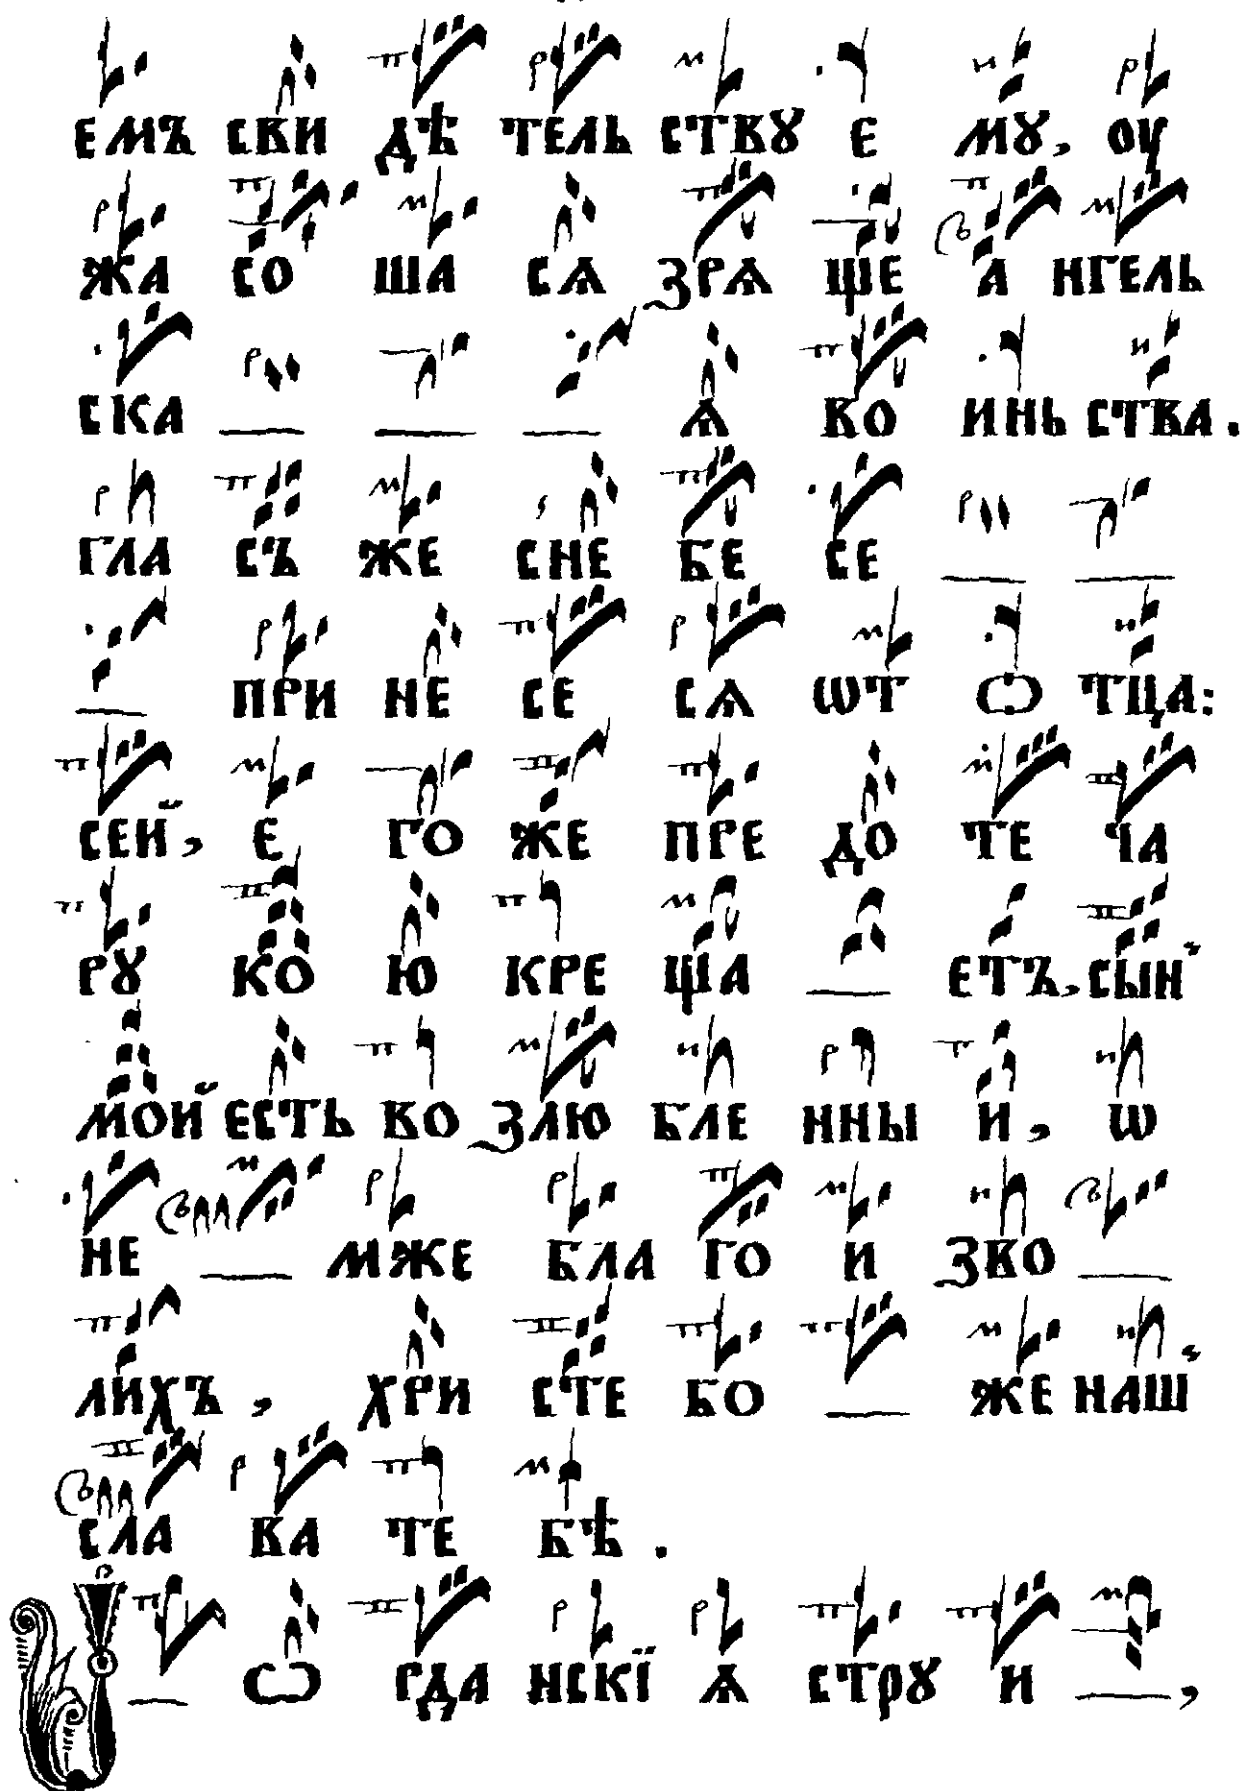 емъ сви дѣ тель ствꙋ е мꙋ, оу
жа со ша сѧ зрѧ ще а нгель
ска _ _ _ ѧ во иньства.
гла съ же сне бе се _ _
_ при не се сѧ ѡт ѻ тца:
сей, е го же пре до те ча
рꙋ ко ю кре ща _ етъ, сын
мой есть во злю бле нны и, ѡ
не _ мже бла го и зво _
лихъ, хри сте бо _ же наш
сла ва те бѣ.
_ ѻ рда нскї ѧ стрꙋ и _,